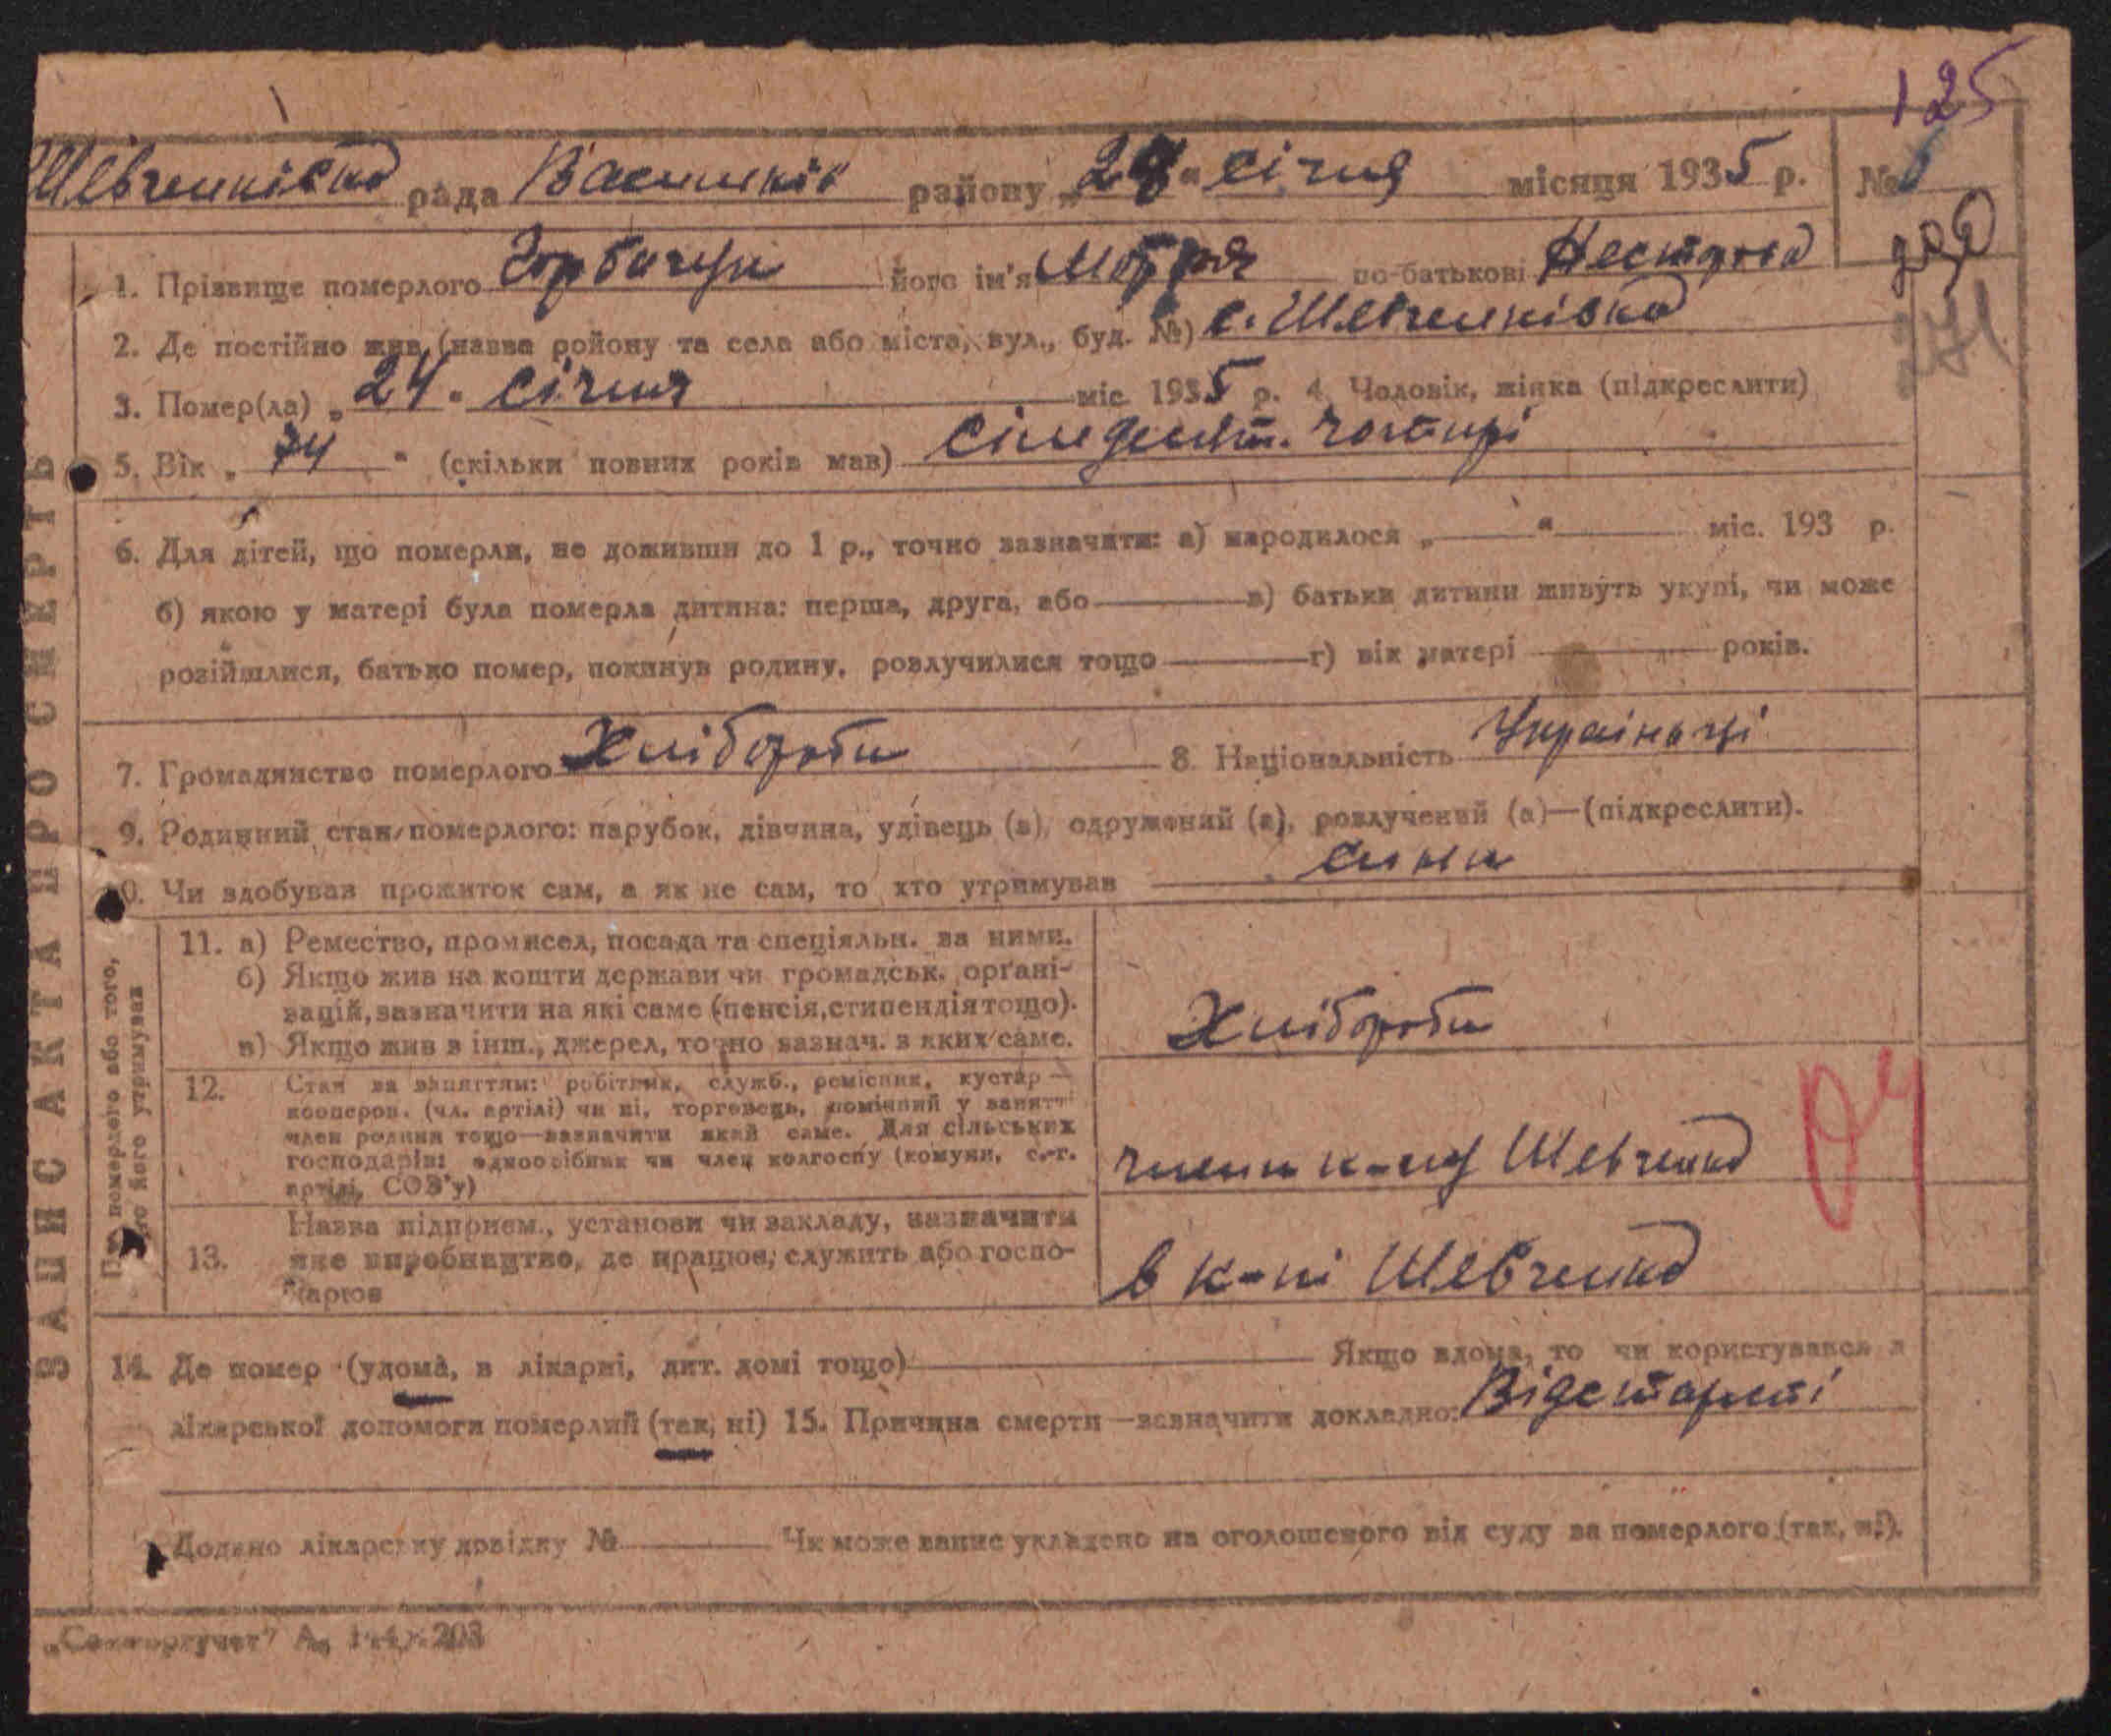 125
Шевченківка рада Васильків району „28“ січня місяця 1935 р. №
1. Прізвище померлого Горбачук його ім'я Мотря по-батькові Нестерова
2. Де постійно жив (назва району та села або міста, вул., буд. №) с. Шевченківка
271
3. Помер(ла) „24“ січня міс. 1935 р. 4. Чоловік, жінка (підкреслити)
5. Вік „74“ (скільки повних років мав) сімдесят. чотирі
6. Для дітей, що померли, не доживши до 1 р., точно зазначити: а) народилося „ “ міс. 193 р.
б) якою у матері була померла дитина: перша, друга, або в) батьки дитини живуть укупі, чи може
розійшлися, батько помер, покинув родину, розлучилися тощо г) вік матері років.
7. Громадянство померлого Хлібороби 8. Національність Українці
9. Родинний стан померлого: парубок, дівчина, удівець (в), одружений (а), розлучений (а)—(підкреслити).
10. Чи здобував прожиток сам, а як не сам, то хто утримував сини
ЗАПИС АКТА ПРО СМЕРТЬ
Про померлого або того, хто його утримував
11. а) Ремество, промисел, посада та спеціяльн. за ними.
б) Якщо жив на кошти держави чи громадськ. орґані-
зацій, зазначити на які саме (пенсія, стипендія тощо).
в) Якщо жив з інш., джерел, точно зазнач. з яких саме.
Хлібороби
12. Стан за заняттям: робітник, служб., ремісник, кустар—
кооперов. (чл. артілі) чи ні, торговець, помічний у занятті
член родини тощо—зазначити який саме. Для сільських
господарів: одноосібник чи член колгоспу (комуни, с.-г.
артілі, СОЗ'у)
члени к-пу Шевченка
13. Назва підприєм., установи чи закладу, зазначити
яке виробництво, де працює, служить або госпо-
дарює
в к-пі Шевченка
14. Де помер (удома, в лікарні, дит. домі тощо) Якщо вдома, то чи користувався з
лікарської допомоги померлий (так, ні) 15. Причина смерти—зазначити докладно: Від старості
Додано лікарську довідку № Чи може запис укладено на оголошеного від суду за померлого (так, ні).